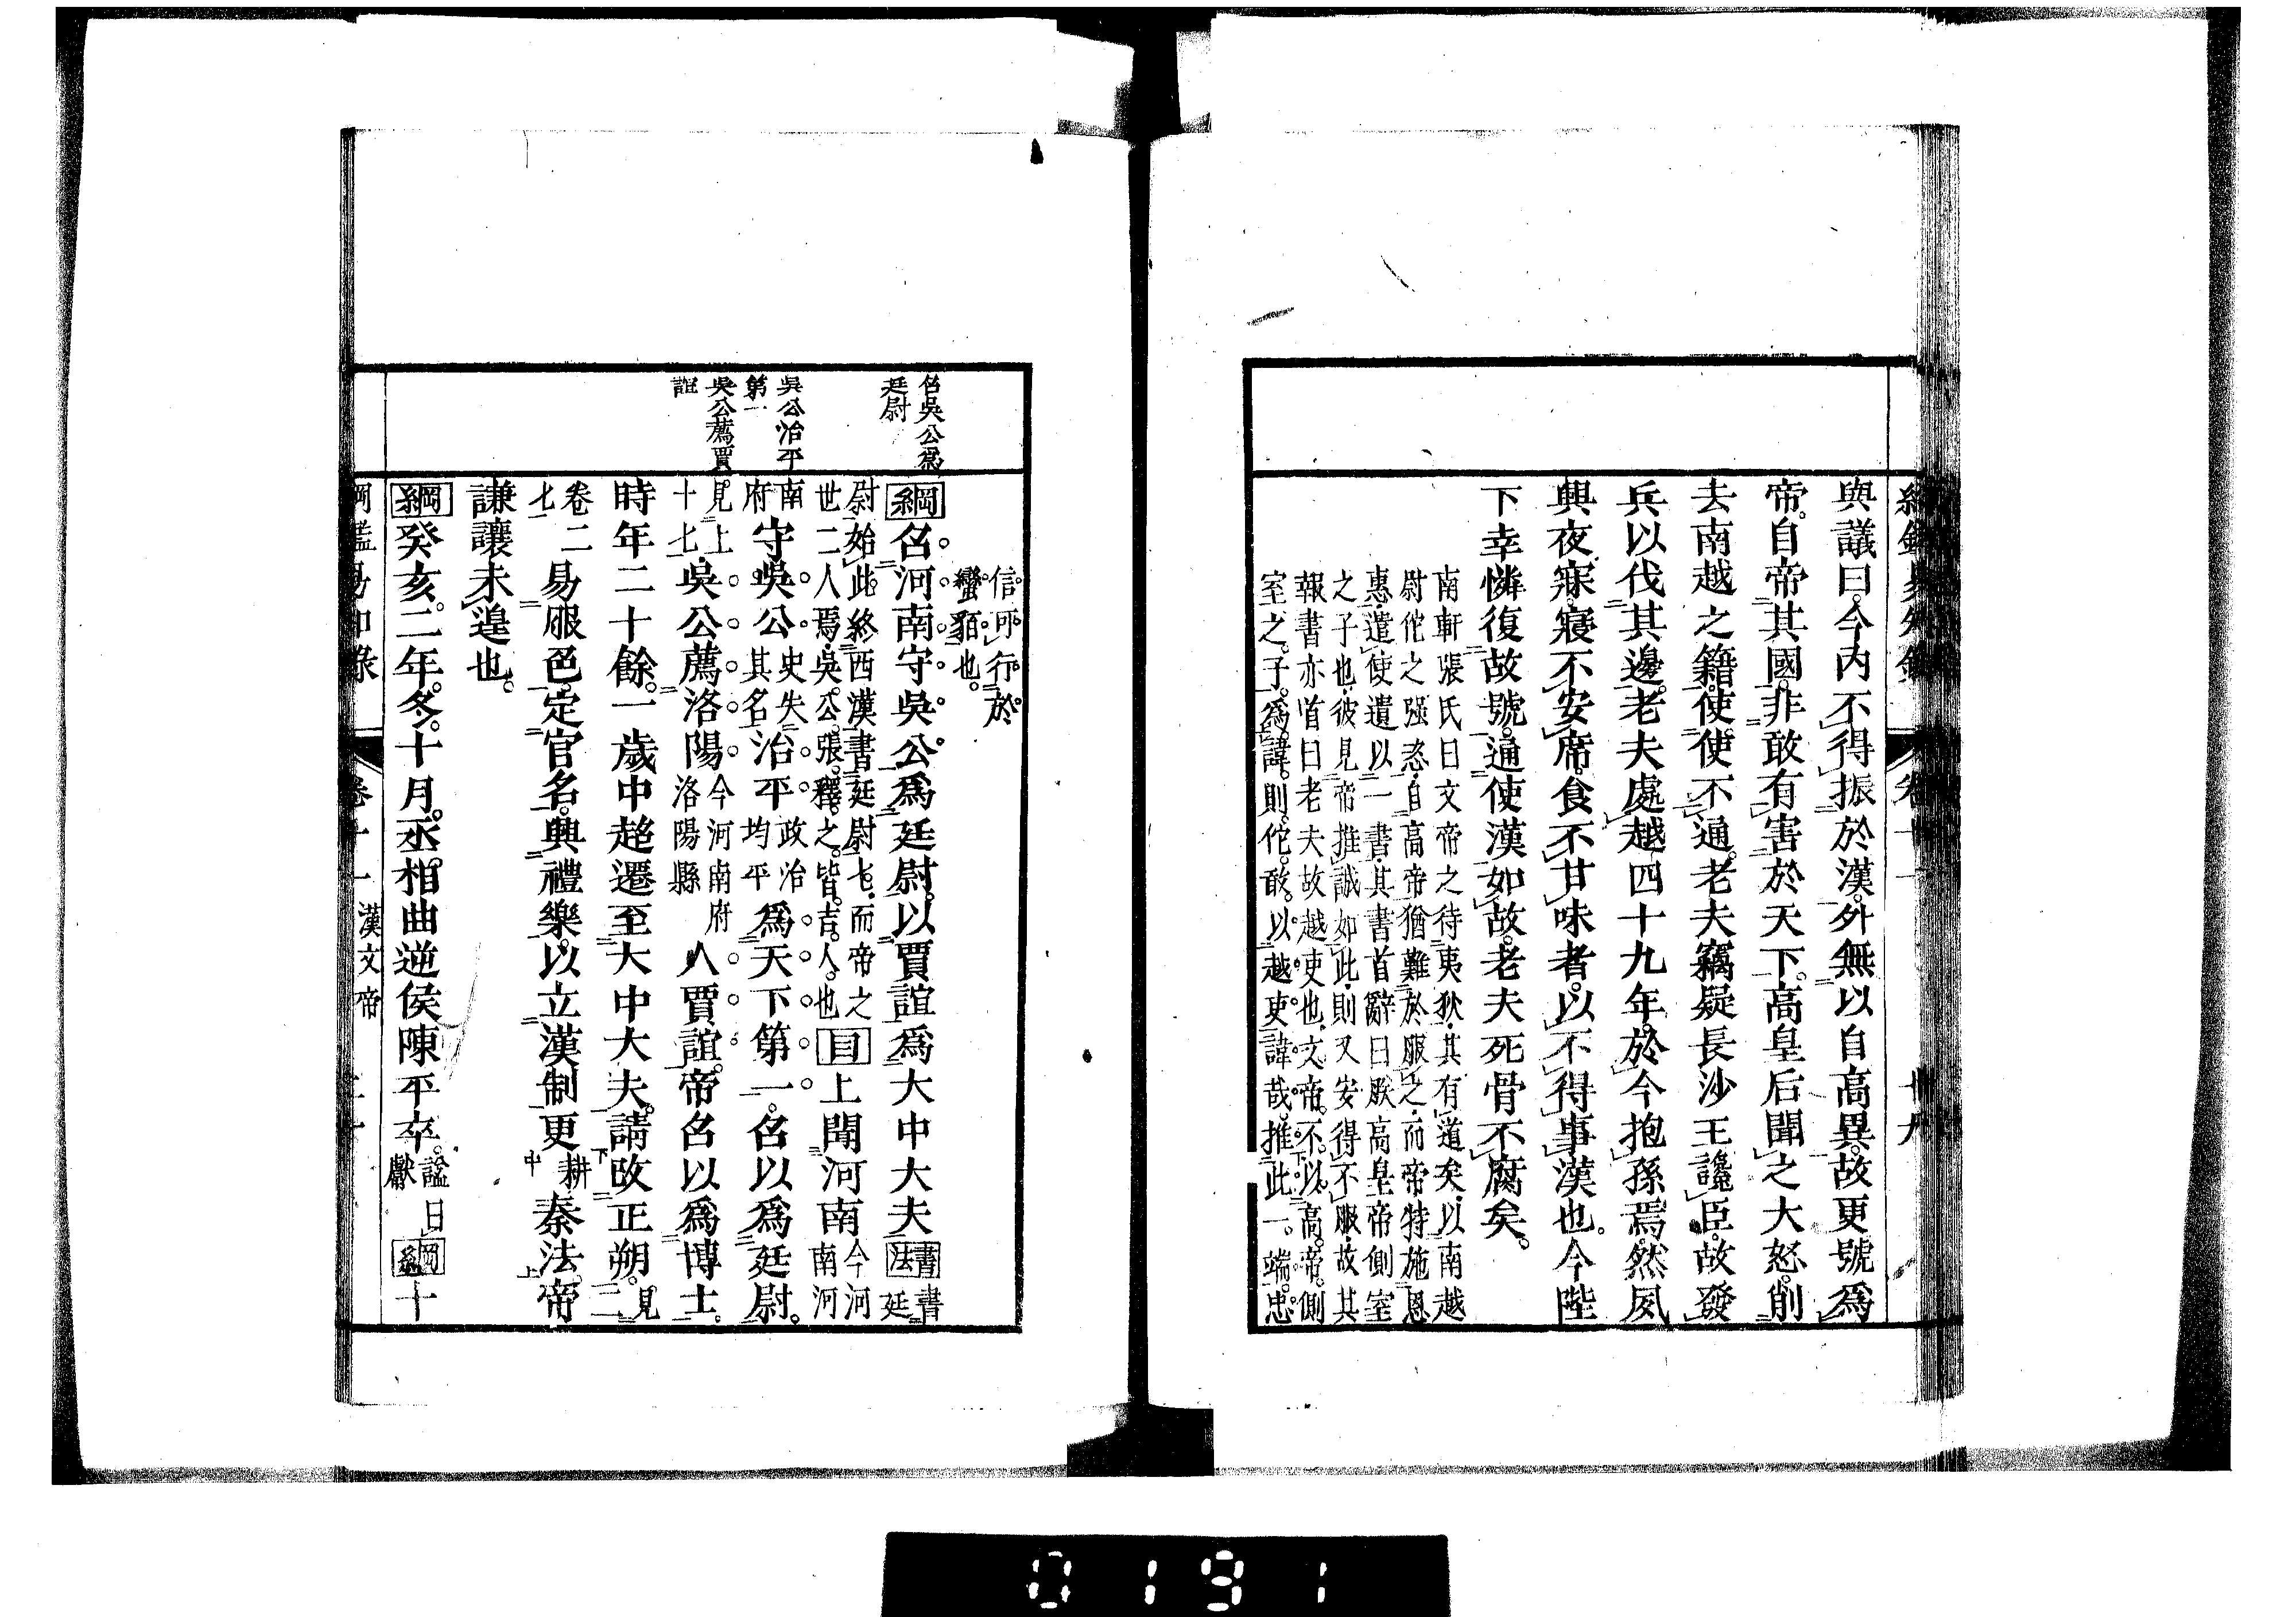 與議曰今内不得振於漢外無以自高異故更號爲
帝自帝其國非敢有害於天下高皇后聞之大怒削
去南越之籍使使不通老夫竊疑長沙王讒臣故發
兵以伐其邊老夫處越四十九年於今抱孫焉然夙
興夜寐寢不安席食不甘味者以不得事漢也今陛
下幸憐復故號通使漢如故老夫死骨不腐矣
南軒張氏曰文帝之待夷狄其有道矣以南越
尉佗之强恣自高帝猶難於服之而帝特施恩
惠遣使遺以一書其書首辭曰朕高皇帝側室
之子也彼見帝推誠如此則又安得不服故其
報書亦首曰老夫故越吏也文帝不以高帝側
室之子爲諱則佗敢以越吏諱哉推此一端忠
信可行於
蠻貊也
召吳公爲
廷尉
吳公治平
第一
吳公薦賈
誼
綱召河南守吳公爲廷尉以賈誼爲大中大夫書法書廷
尉始此終西漢書廷尉七而帝之
世二人焉吳公張釋之皆吉人也目上聞河南今河南河
南府守吳公史失其名治平政治均平爲天下第一召以爲廷尉
見上十七吳公薦洛陽今河南府洛陽縣人賈誼帝召以爲博士
時年二十餘一歲中超遷至大中大夫請改正朔見二
卷二七易服色定官名興禮樂以立漢制更耕秦法帝
謙讓未遑也
綱癸亥二年冬十月丞相曲逆侯陳平卒謚曰獻綱十
綱鑑易知錄 卷十一 漢文帝
0191